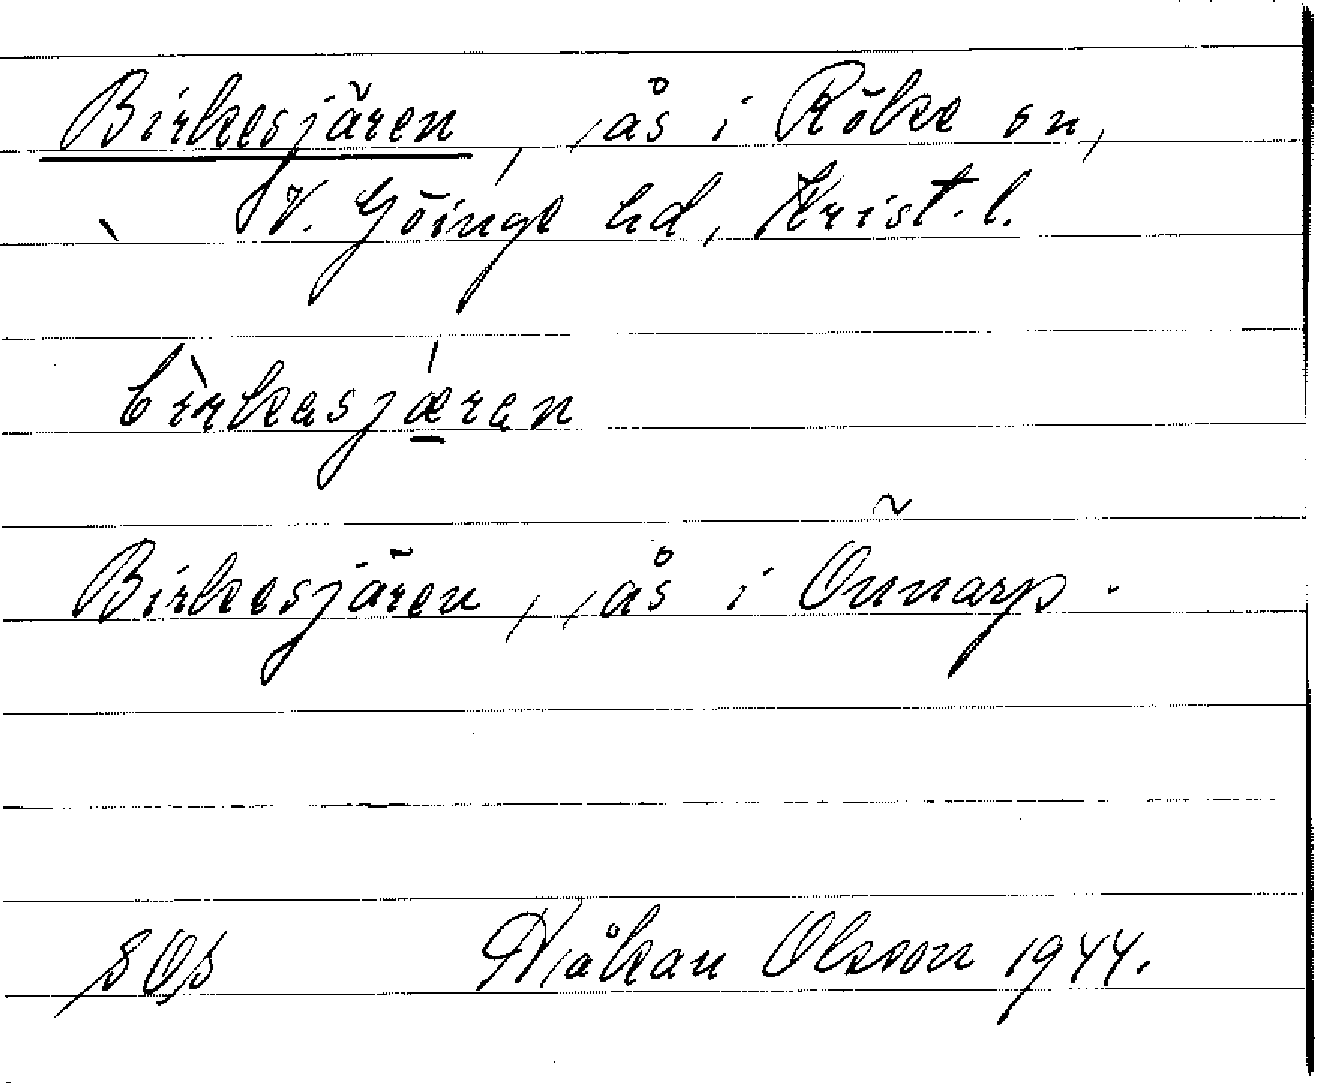 Birkesjären, ås i Röke sn,
V. Göinge hd, Krist. l.
bìrkasjǽran
Birkesjären, ås i Önnarp.
Håkan Olsson 1944.